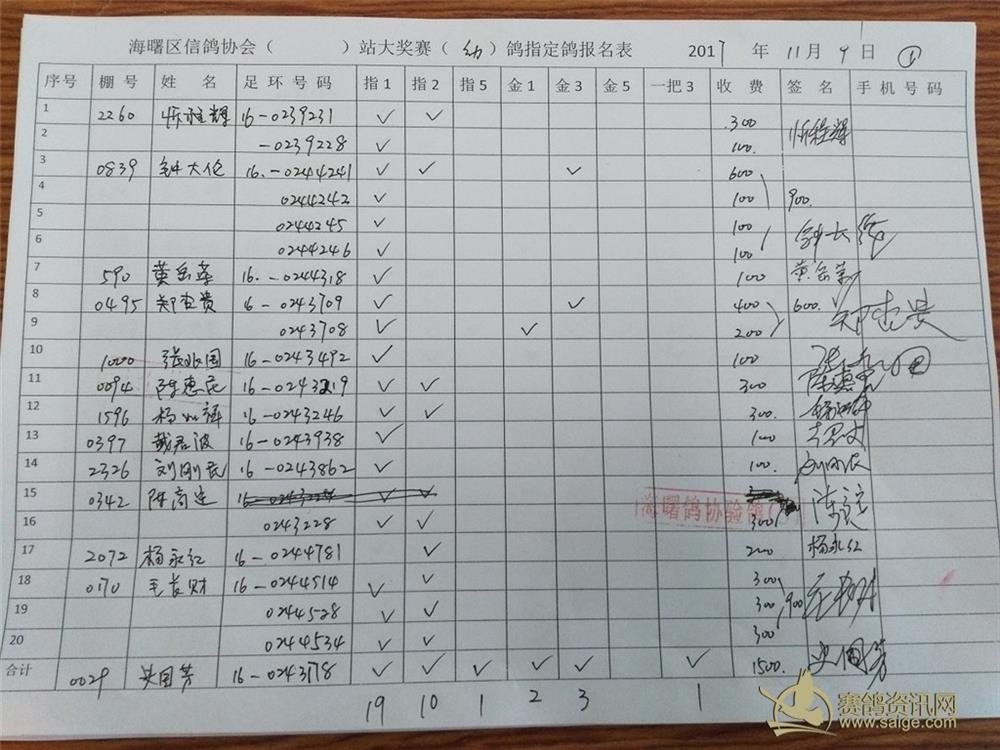 海曙区信鸽协会（ ）站大奖赛（幼）鸽指定鸽报名表 2017 年 11 月 9 日 ①
序号 棚号 姓名 足环号码 指1 指2 指5 金1 金3 金5 一把3 收费 签名 手机号码
1 2260 16-0239231 ✓ ✓ 300
2 -0239228 ✓ 100
3 0839 钟大伦 16.-0244241 ✓ ✓ ✓ 600
4 0244242 ✓ 100 900.
5 0244245 ✓ 100
6 0244246 ✓ 100
7 590 16.-0244318 ✓ 100
8 0495 16-0243709 ✓ ✓ 400 600.
9 0243708 ✓ ✓ 200
10 1000 张兆国 16-0243492 ✓ 100
11 0094 陈惠民 16-0243219 ✓ ✓ 300
12 1596 16-0243246 ✓ ✓ 300.
13 0397 戴君波 16-0243938 ✓ 100
14 2326 刘刚民 16-0243862 ✓ 100. 刘刚民
15 0342
海曙鸽协验鸽
16 0243228 ✓ ✓ 300
17 2072 杨永红 16-0244781 ✓ 200 杨永红
18 0170 毛长财 16-0244514 ✓ ✓ 300
19 0244528 ✓ ✓ 300 900
20 0244534 ✓ ✓ 300
合计 0029 史国芳 16-0243178 ✓ ✓ ✓ ✓ ✓ ✓ 1500. 史国芳
19 10 1 2 3 1
赛鸽资讯网
www.saige.com